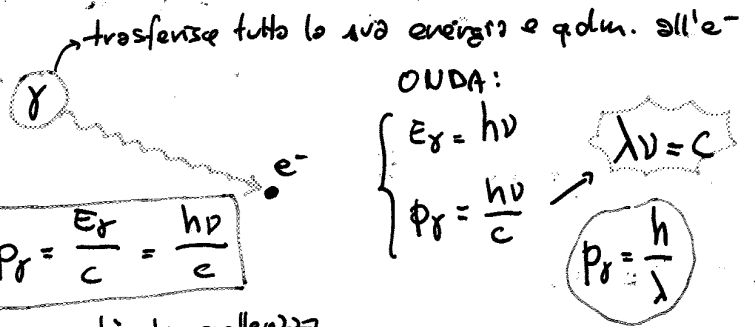 trasferisce tutta la sua energia e q.d.m. all'e⁻
γ
ONDA:
E_γ = hν
λν = c
e⁻
p_γ = hν/c
p_γ = E_γ/c = hν/c
p_γ = h/λ